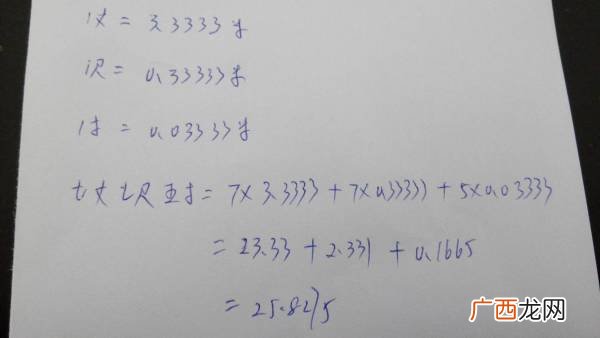 1丈 = 3.3333米
1尺 = 0.33333米
1寸 = 0.03333米
七丈七尺五寸 = 7×3.3333 + 7×0.33333 + 5×0.03333
= 23.33 + 2.331 + 0.1665
= 25.8275
广西龙网